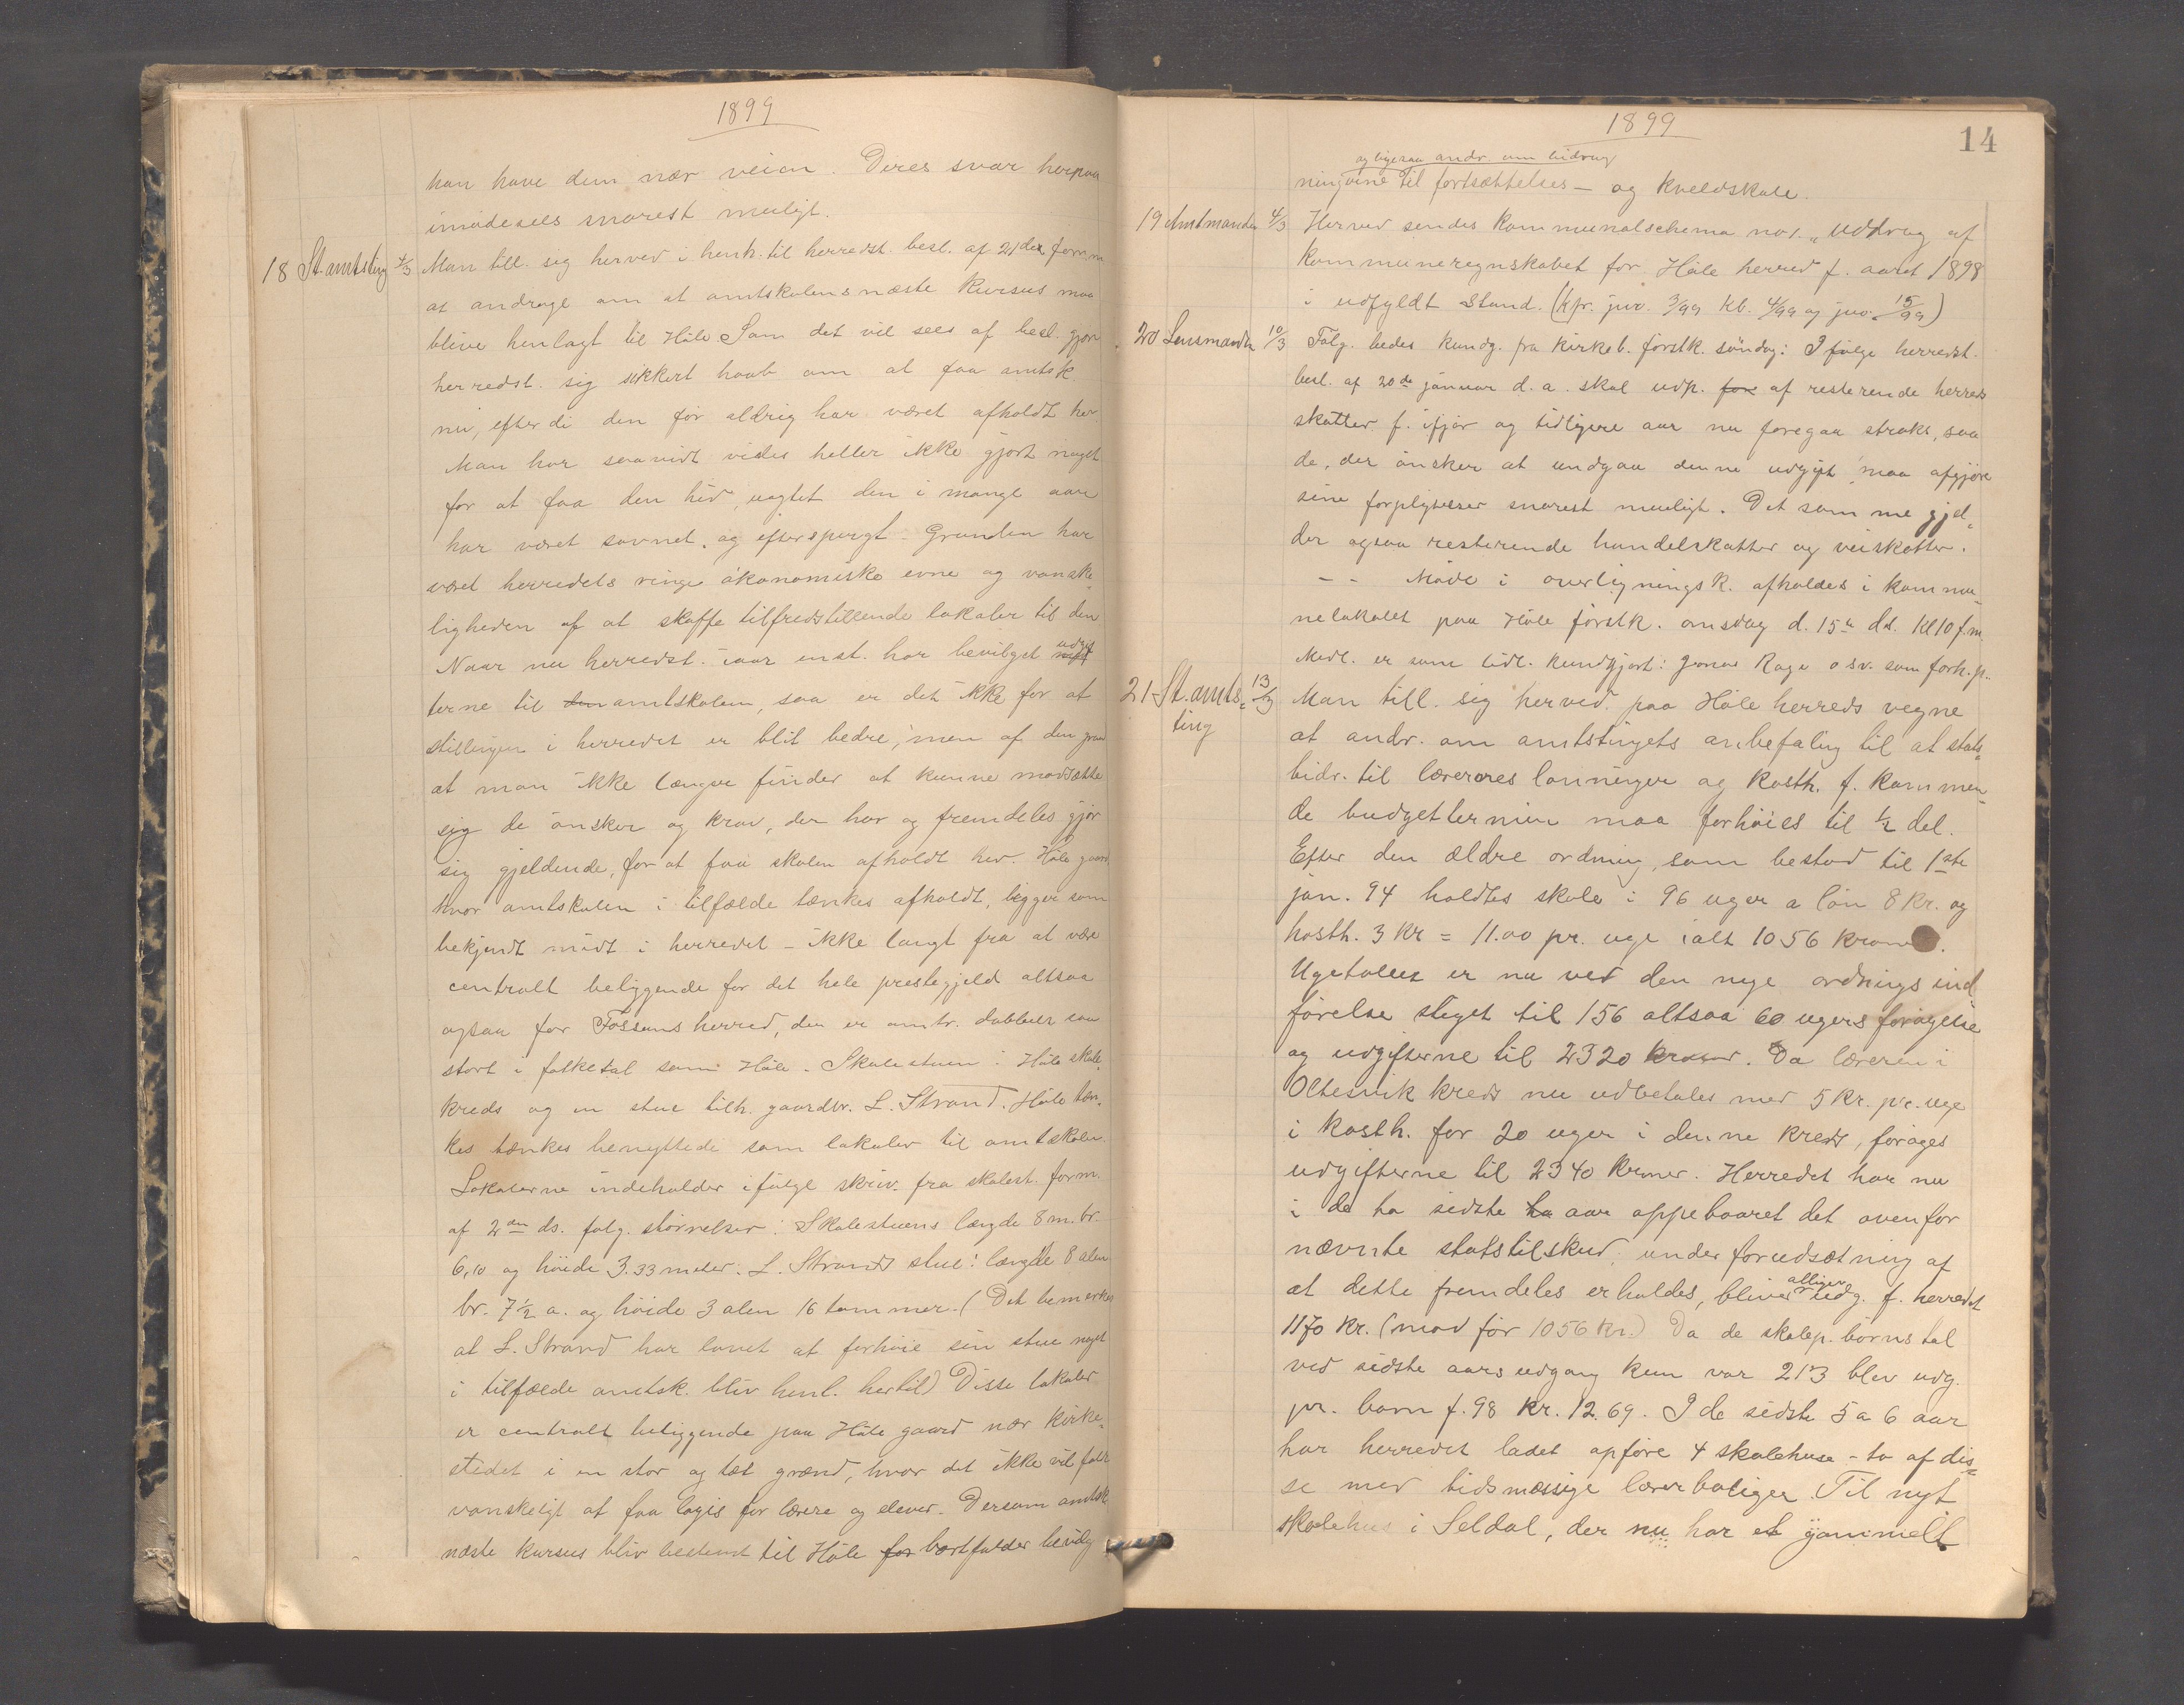 1899
kan have dem nær veien. Deres svar herpaa
imødesees snarest muligt.
18 St. amtsting 4/3 Man till. sig herved i henh. til herredst. besl. af 21de f. m.
at andrage om at amtskolens næste kursus maa
blive henlagt til Høle. Som det vil sees af besl. gjør
herredst. sig sikkert haab om at faa amtsk.
nu, efterdi den før aldrig har været afholdt her.
Man har saavidt vides heller ikke gjort noget
for at faa den hid, uagtet den i mange aar
har været savnet og efterspurgt. Grunden har
været herredets ringe økonomiske evne og vanske-
ligheden af at skaffe tilfredstillende lokaler til den
Naar nu herredst. iaar enst. har bevilget udgif
terne til den amtskolen, saa er det ikke for at
stillingen i herredet er blit bedre, men af den grund
at man ikke længre finder at kunne modsætte
sig de ønsker og krav, der har og fremdeles gjør
sig gjeldende, for at faa skolen afholdt her. Høle gaard
hvor amtskolen i tilfælde tænkes afholdt, ligger som
bekjendt midt i herredet - ikke langt fra at være
centralt beliggende for det hele prestegjeld altsaa
ogsaa for Fossans herred, der er omtr. dobbelt saa
stort i folketal som Høle. Skolestuen i Høle skole-
kreds og en stue tilh. gaardbr. L. Strand. Høle tæn-
kes tænkes benyttede som lokaler til amtskolen.
Lokalerne indeholder ifølge skriv. fra skolest. form.
af 2den ds. følg. størrelser: Skolestuens længde 8 m. br.
6,10 og høide 3.33 meter. L. Strands stue: længde 8 alen
br. 7½ a. og høide 3 alen 16 tommer. (Det bemerkes
at L. Strand har lovet at forhøie sin stue noget
i tilfælde amtsk. bliv henl. hertil) Disse lokaler
er centralt beliggende paa Høle gaard nær kirke-
stedet i en stor og tæt grænd, hvor det ikke vil falde
vanskeligt at faa logis for lærere og elever. Dersom amtsk.
næste kursus bliv bestemt til Høle for bortfalder bevilg
1899
14
og ligesaa andr. om bidrag
ningerne til fortsættelses- og kveldskole.
19 Amtmanden 4/3 Herved sendes kommunalschema no 1. „Uddrag af
kommuneregnskabet for Höle herred f. aaret 1898
i udfyldt stand. (kfr. jnr. 3/99 kb. 4/99 og jnr. 15/99)
20 Lensmanden 10/3 Følg. bedes kundg. fra kirkeb. førstk. søndag: Ifølge herredst.
besl. af 20de januar d. a. skal udp. for af resterende herreds
skatter f. ifjor og tidligere aar nu foregaa straks, saa
de, der ønsker at undgaa denne udgift maa afgjøre
sine forpligtelser snarest muligt. Det samme gjel-
der ogsaa resterende hundeskatter og veiskatter.
- - Møde i overligningsk. afholdes i kommu-
nelokalet paa Høle førstk. onsdag d. 15de ds. Kl 10 f.m.
Medl. er som tidl. kundgjort: Jonas Rage o sv. som forh. p.
21 St. amts- 13/3 Man till. sig herved paa Høle herreds vegne
ting at andr. om amtstingets anbefaling til at stats-
bidr. til lærernes lønninger og kosth. f. kommen-
de budgettermin maa forhøies til ½ del.
Efter den ældre ordning, som bestod til 1ste
jan. 94 holdtes skole i 96 uger a løn 8 kr. og
kosth. 3 kr = 11.00 pr. uge ialt 1056 kroner.
Ugetallet er nu ved den nye ordnings ind
førelse steget til 156 altsaa 60 ugers forøgelse
og udgifterne til 2320 kroner. Da læreren i
Oltesvik kreds nu udbetales med 5 kr. pr. uge
i kosth. for 20 uger i denne kreds, forøges
udgifterne til 2340 kroner. Herredet har nu
i de to sidste to aar oppebaaret det ovenfor
nævnte statstilskud, under forudsætning af
at dette fremdeles erholdes, bliver alligevel udg. f. herredet
1170 kr. (mod før 1056 kr.) Da de skolep. børns tal
ved sidste aars udgang kun var 213 blev udg.
pr. barn f. 98 kr. 12.69. I de sidste 5 a 6 aar
har herredet ladet opføre 4 skolehuse - to af dis-
se med tidsmæssige lærerboliger. Til nyt
skolehus i Seldal, der nu har et gammelt